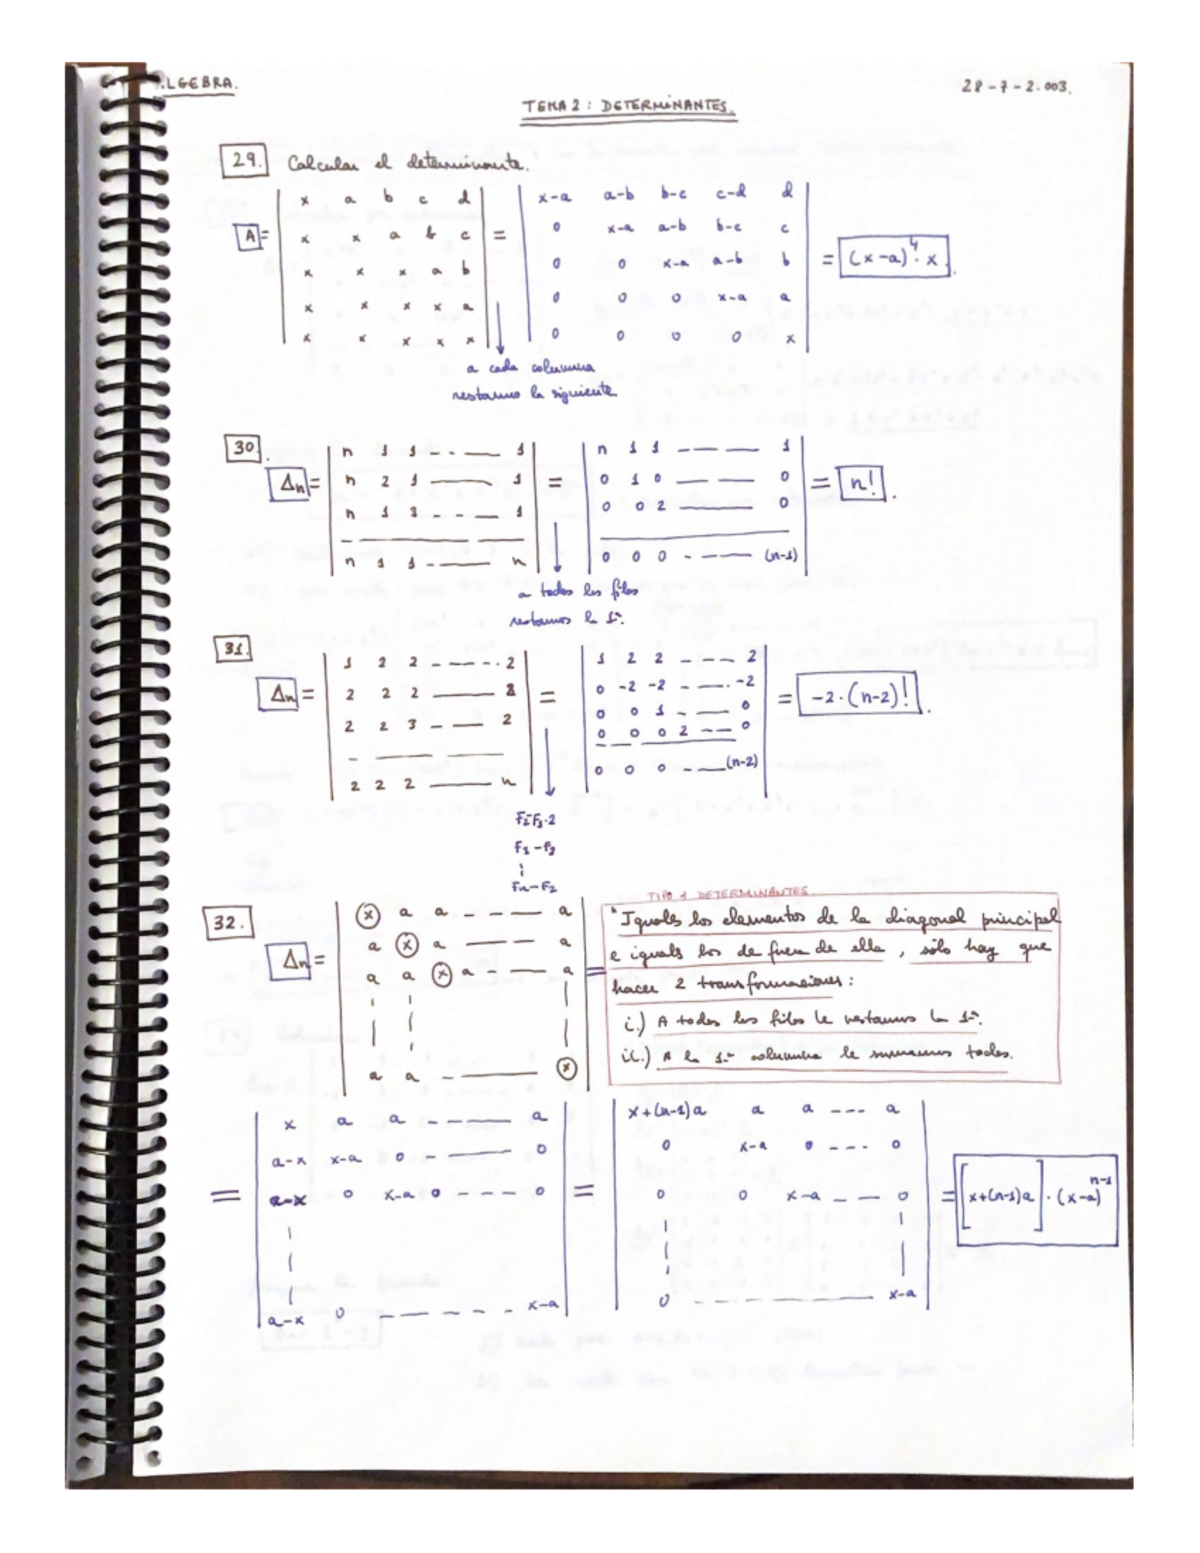 ALGEBRA.
28-7-2.003.
TEMA 2: DETERMINANTES.
29. Calcular el determinante.
A = | x a b c d | = | x-a a-b b-c c-d d | = (x-a)^4 · x.
| x x a b c | | 0 x-a a-b b-c c |
| x x x a b | | 0 0 x-a a-b b |
| x x x x a | | 0 0 0 x-a a |
| x x x x x | | 0 0 0 0 x |
a cada columna
restamos la siguiente.
30.
Δn = | n 1 1 ------ 1 | = | n 1 1 ------ 1 | = n! .
| n 2 1 ------ 1 | | 0 1 0 ------ 0 |
| n 1 3 ------ 1 | | 0 0 2 ------ 0 |
| n 1 1 ------ n | | 0 0 0 ------ (n-1) |
a todas las filas
restamos la 1ª.
31.
Δn = | 1 2 2 ------ 2 | = | 1 2 2 ------ 2 | = -2·(n-2)! .
| 2 2 2 ------ 2 | | 0 -2 -2 ------ -2 |
| 2 2 3 ------ 2 | | 0 0 1 ------ 0 |
| 0 0 0 2 ---- 0 |
| 2 2 2 ------ n | | 0 0 0 ------ (n-2) |
F2-F1·2
F3-F2
Fn-F2
32.
Δn = | x a a ------ a | =
| a x a ------ a |
| a a x a ------ a |
| a a ------ x |
TIPO 1 DETERMINANTES.
"Iguales los elementos de la diagonal principal
e iguales los de fuera de ella, sólo hay que
hacer 2 transformaciones:
i.) A todas las filas le restamos la 1ª.
ii.) A la 1ª columna le sumamos todas.
= | x a a ------ a | = | x+(n-1)a a a --- a | = [x+(n-1)a] · (x-a)^n-1
| a-x x-a 0 ------ 0 | | 0 x-a 0 --- 0 |
| a-x 0 x-a 0 ---- 0 | | 0 0 x-a --- 0 |
| a-x 0 ------ x-a | | 0 ------ x-a |